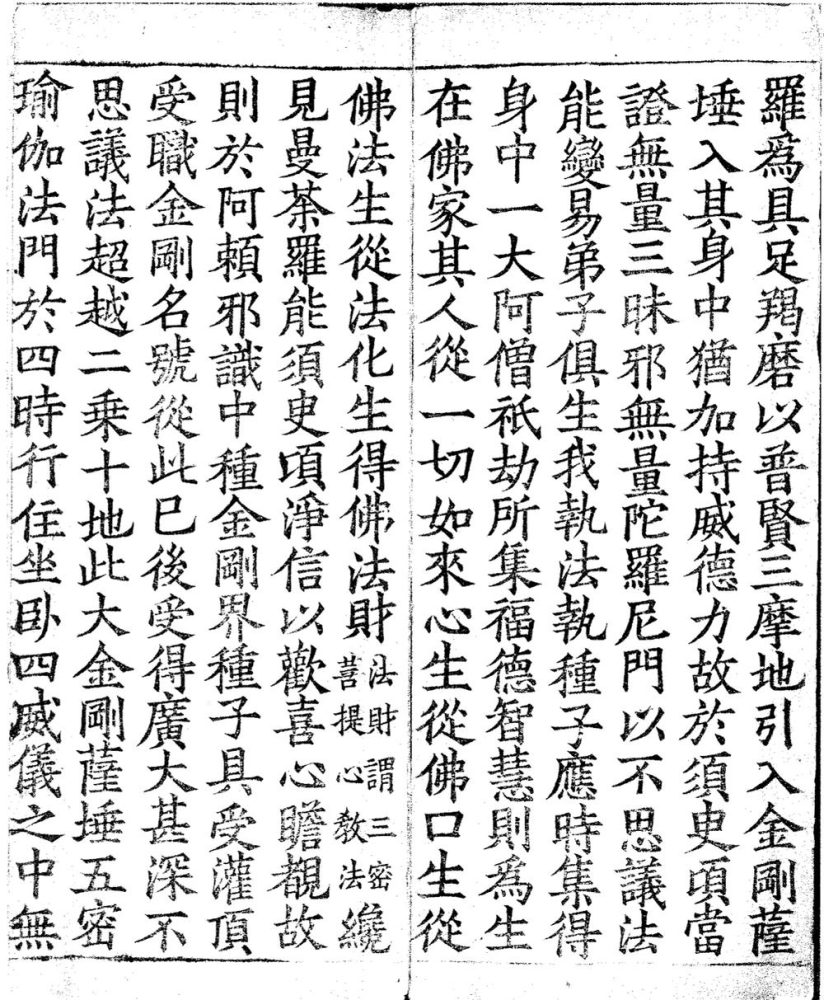 羅爲具足羯磨以普賢三摩地引入金剛薩
埵入其身中猶加持威德力故於須史頃當
證無量三昧邪無量陀羅尼門以不思議法
能變易弟子俱生我執法執種子應時集得
身中一大阿僧祇劫所集福德智慧則爲生
在佛家其人從一切如來心生從佛口生從
佛法生從法化生得佛法財法財謂三密菩提心教法纔
見曼荼羅能須史頃淨信以歡喜心瞻覩故
則於阿賴邪識中種金剛界種子具受灌頂
受職金剛名號從此已後受得廣大甚深不
思議法超越二乗十地此大金剛薩埵五密
瑜伽法門於四時行住坐卧四威儀之中無